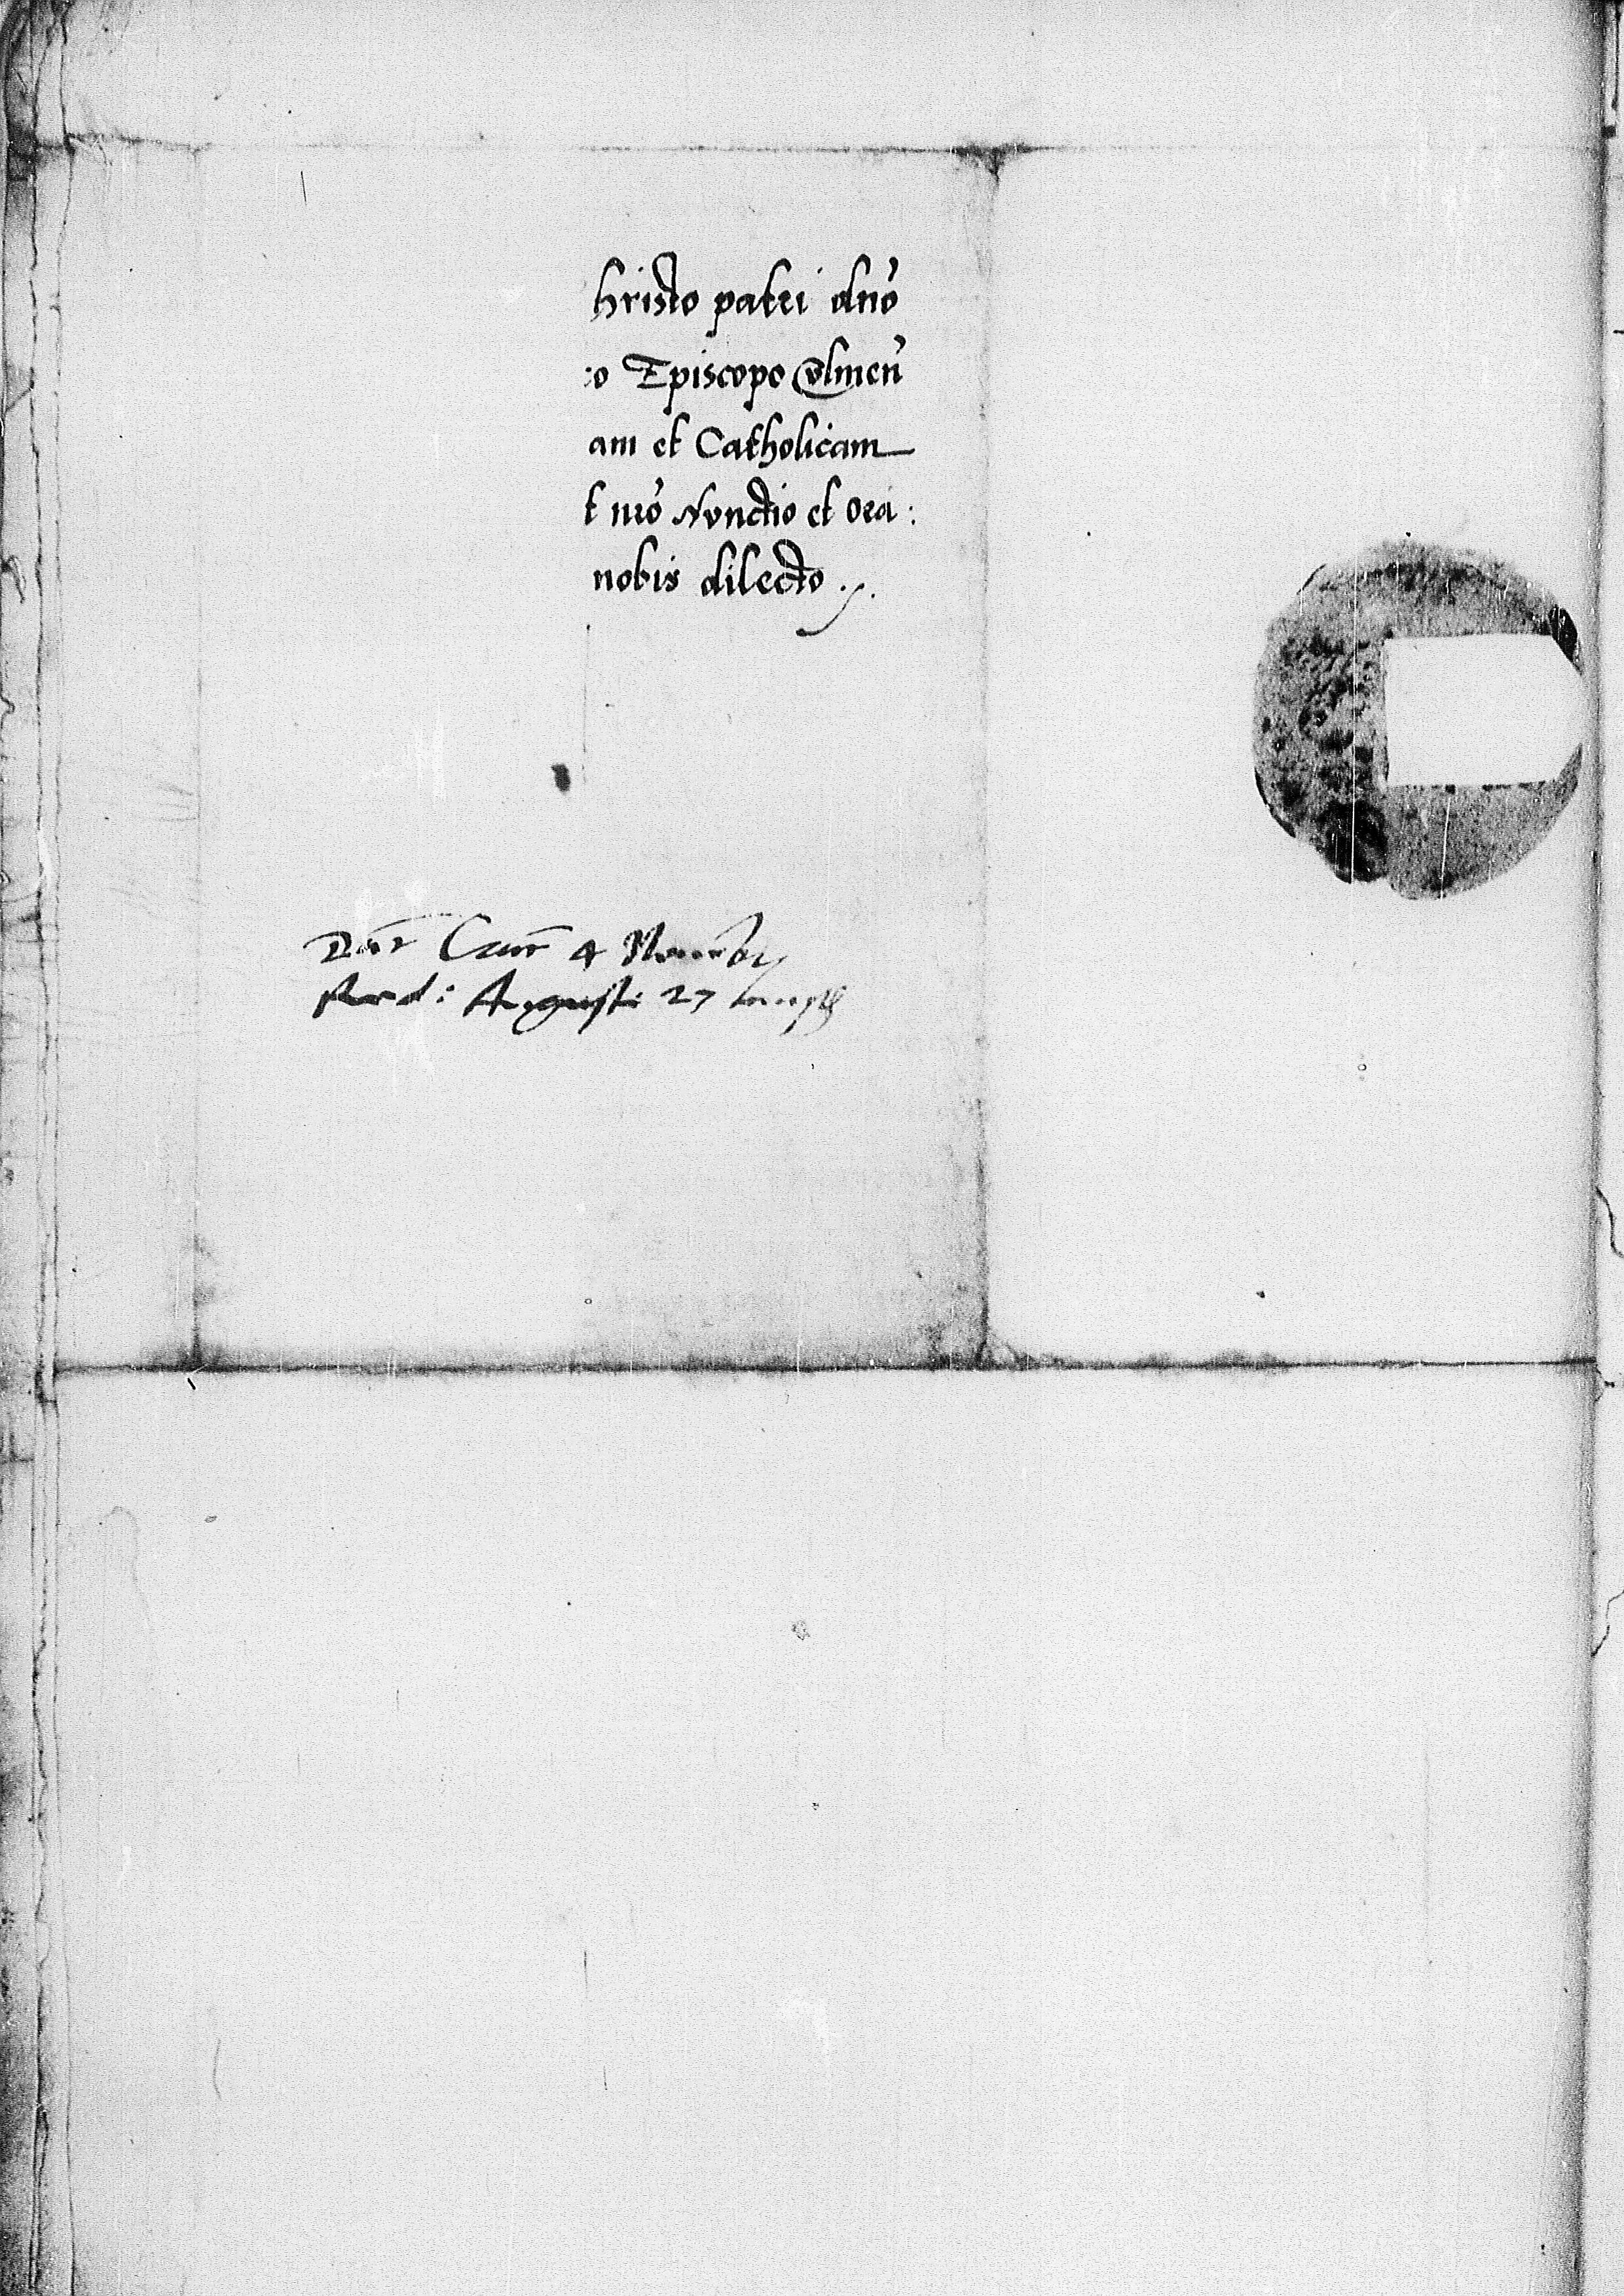 hristo patri dno
o Episcopo Culmen
am et Catholicam
t nro Nunctio et Ora:
nobis dilecto
Dat Crac 4 Novemb
Red: Augusti 27